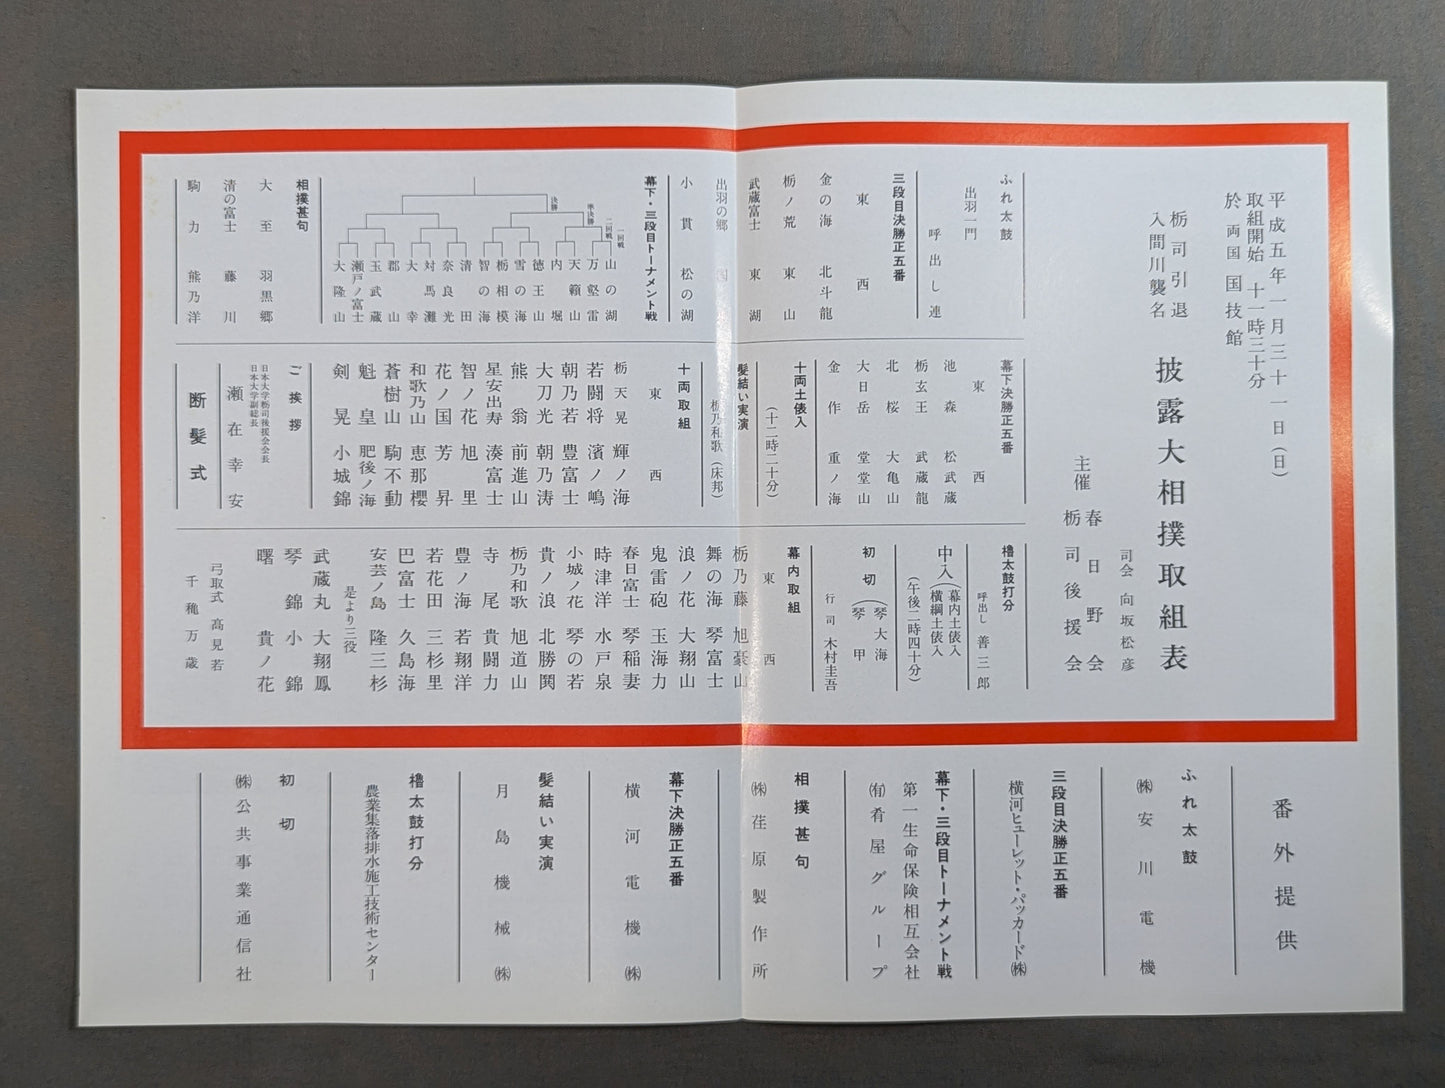 平成五年一月三十一日（日）
取組開始 十一時三十分
於 両国 国技館
栃司引退
入間川襲名
披露大相撲取組表
主催
春日野会
栃司後援会
司会 向坂松彦
ふれ太鼓
出羽一門
呼出し連
三段目決勝正五番
東 西
金の海 北斗龍
栃ノ荒 東山
武蔵富士 東湖
出羽の郷
小貫 松の湖
幕下・三段目トーナメント戦
一回戦
二回戦
準決勝
決勝
山の湖
万壑雷
天籟山
内堀
徳王山
雪の海
栃相模
智の海
清田
奈良光
対馬灘
大幸
郡山
玉武蔵
瀬戸ノ富士
大隆山
相撲甚句
大至 羽黒郷
清の富士 藤川
駒力 熊乃洋
幕下決勝正五番
東 西
池森 松武蔵
栃玄王 武蔵龍
北桜 大亀山
大日岳 堂堂山
金作 重ノ海
十両土俵入
（十二時二十分）
髪結い実演
栃乃和歌（床邦）
十両取組
東 西
栃天晃 輝ノ海
若闘将 濱ノ嶋
朝乃若 豊富士
大刀光 朝乃涛
熊翁 前進山
星安出寿 湊富士
智ノ花 旭里
花ノ国 芳昇
和歌乃山 恵那櫻
蒼樹山 駒不動
魁皇 肥後ノ海
剣晃 小城錦
ご挨拶
日本大学栃司後援会会長
日本大学副総長
瀬在幸安
断髪式
櫓太鼓打分
呼出し 善三郎
中入（幕内土俵入
横綱土俵入
（午後二時四十分）
初切（琴大海
琴甲
行司 木村圭吾
幕内取組
東 西
栃乃藤 旭豪山
舞の海 琴富士
浪ノ花 大翔山
鬼雷砲 玉海力
春日富士 琴稲妻
時津洋 水戸泉
小城ノ花 琴の若
貴ノ浪 北勝鬨
栃乃和歌 旭道山
寺尾 貴闘力
豊ノ海 若翔洋
若花田 三杉里
巴富士 久島海
安芸ノ島 隆三杉
是より三役
武蔵丸 大翔鳳
琴錦 小錦
曙 貴ノ花
弓取式 高見若
千穐万歳
番外提供
ふれ太鼓
㈱安川電機
三段目決勝正五番
横河ヒューレット・パッカード㈱
幕下・三段目トーナメント戦
第一生命保険相互会社
㈲肴屋グループ
相撲甚句
㈱荏原製作所
幕下決勝正五番
横河電機㈱
髪結い実演
月島機械㈱
櫓太鼓打分
農業集落排水施工技術センター
初切
㈱公共事業通信社